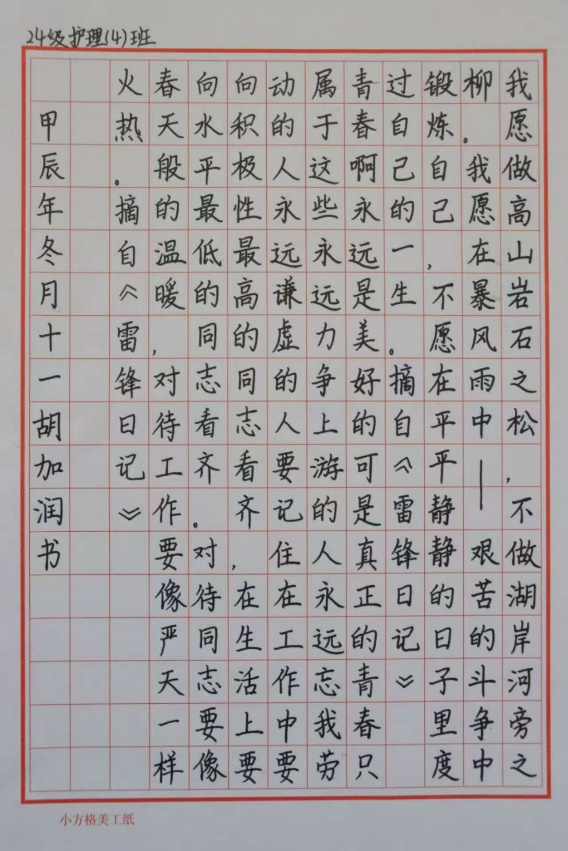 24级护理(4)班
我愿做高山岩石之松，不做湖岸河旁之
柳。我愿在暴风雨中——艰苦的斗争中
锻炼自己，不愿在平平静静的日子里度
过自己的一生。摘自《雷锋日记》
青春啊永远是美好的可是真正的青春只
属于这些永远力争上游的人永远忘我劳
动的人永远谦虚的人要记住在工作中要
向积极性最高的同志看齐，在生活上要
向水平最低的同志看齐。对待同志要像
春天般的温暖，对待工作要像严天一样
火热。摘自《雷锋日记》
甲辰年冬月十一胡加润书
小方格美工纸